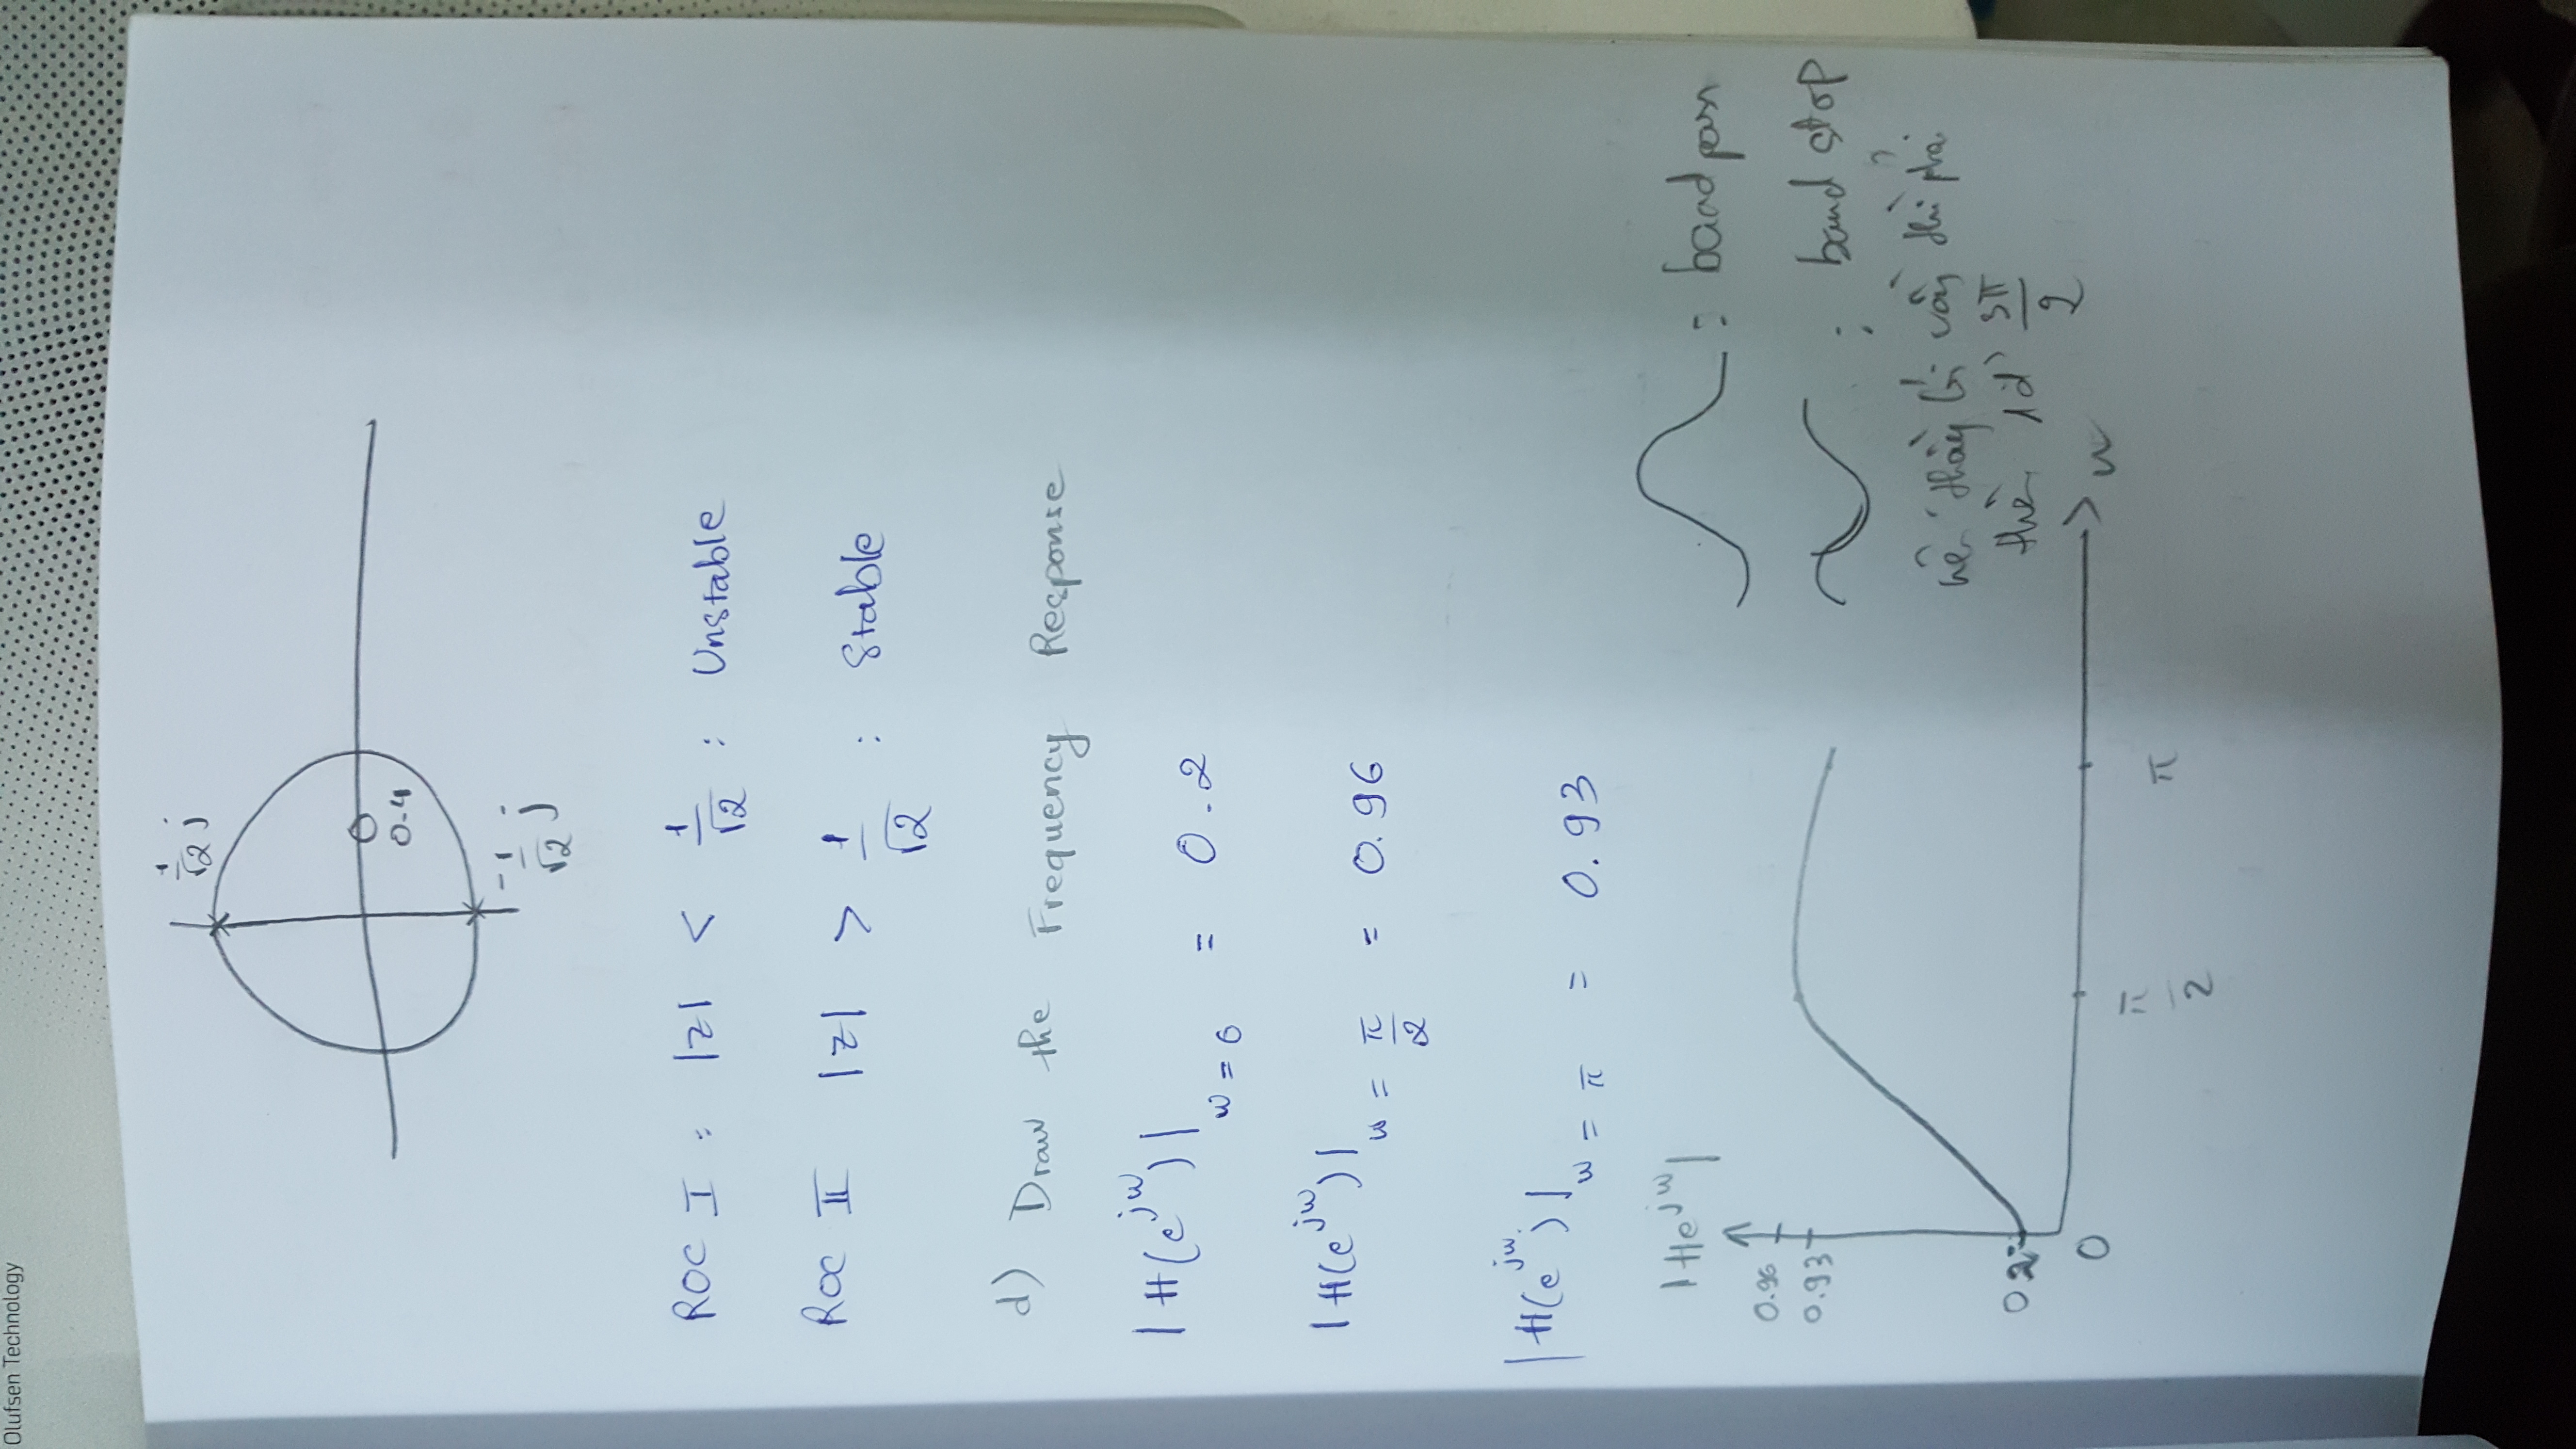 Olufsen Technology
1/√2 j
0.4
-1/√2 j
ROC I : |z| < 1/√2 : Unstable
ROC II |z| > 1/√2 : Stable
d) Draw the Frequency Response
|H(e^jw)| w=0 = 0.2
|H(e^jw)| w=π/2 = 0.96
|H(e^jw)| w=π = 0.93
|He^jw|
0.96
0.93
0.2
0
π/2
π
w
: band pass
: band stop
thì
3π/2